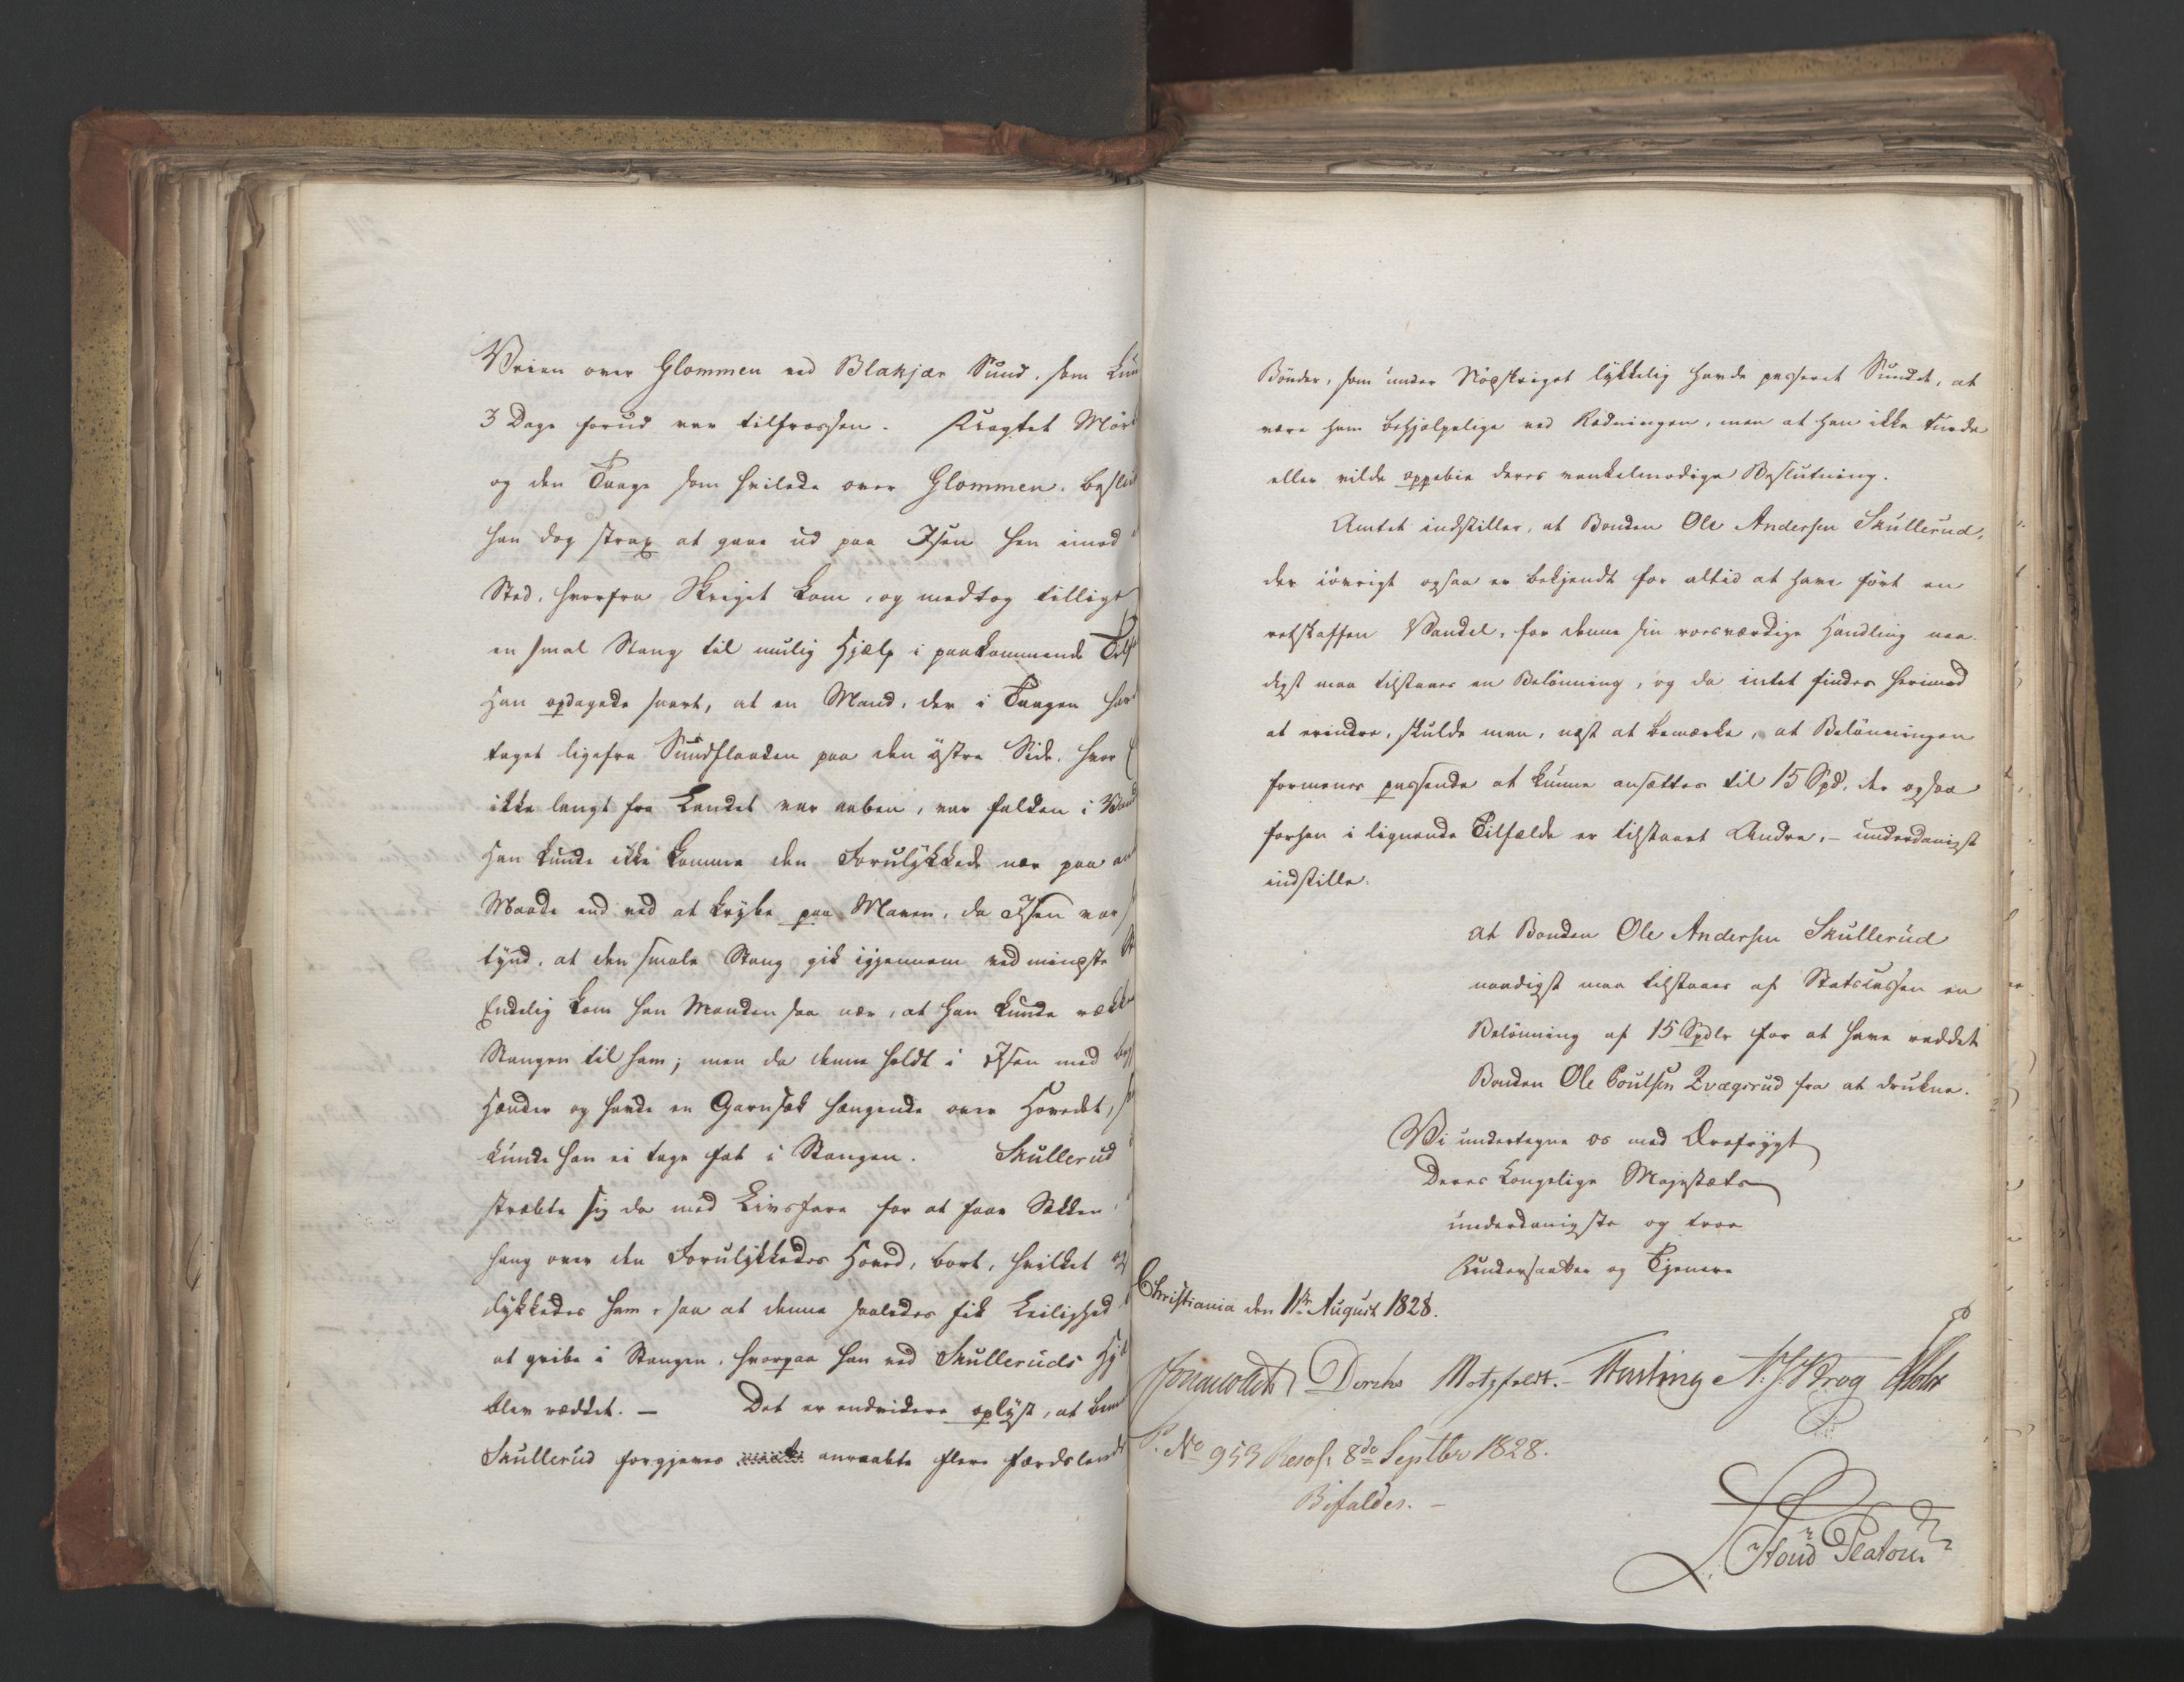 Veien over Glommen ved Blakjær Sund, som kun
3 Dage forud var tilfrossen. Uagtet Mør
og den Taage som hvilede over Glommen, beslut
han dog strax at gaae ud paa Isen hen imod
Sted, hvorfra Skriget kom, og medtog tillige
en smal Stang til mulig Hjælp i paakommende Tilf
Han opdagede snart, at en Mand, der i Taagen hav
taget ligefra Sundflaaden paa den østre Side, hvor
ikke langt fra Landet var aaben, var falden i Vand
Han kunde ikke komme den Forulykkede nær paa an
Maade end ved at krybe paa Maven, da Isen var
tynd, at den smale Stang gik igjennem ved mindste
Endelig kom han Manden saa nær, at han kunde række
Stangen til ham; men da denne holdt i Isen med beg
Hænder og havde en Garnsæk hængende over Hovedet,
kunde han ei tage fat i Stangen. Skullerud
strakte sig da med Livsfare for at faae Sækken,
hang over den Forulykkedes Hoved, bort, hvilket og
lykkedes ham, saa at denne saaledes fik Leilighed
at gribe i Stangen, hvorpaa han ved Skulleruds Hj
blev reddet. – Det er endvidere oplyst, at bem
Skullerud forgjæves anraabte flere færdslende
Bønder, som under Nødskriget lykkelig havde passeret Sundet, at
være ham behjælpelige ved Redningen, men at han ikke turde
eller vilde oppebie deres vankelmodige Beslutning.
Amtet indstiller, at Bonden Ole Andersen Skullerud,
der iøvrigt ogsaa er bekjendt for altid at have ført en
retskaffen Vandel, for denne sin roesværdige Handling naa-
digst maa tilstaaes en Belønning, og da intet findes herimod
at erindre, skulde man, næst at bemærke, at Belønningen
formenes passende at kunne ansættes til 15 Spd, der ogsaa
forhen i lignende Tilfælde er tilstaaet Andre, – underdanigst
indstille:
at Bonden Ole Andersen Skullerud
naadigst maa tilstaaes af Statscassen en
Belønning af 15 Spdlr for at have reddet
Bonden Ole Poulsen Kvægsrud fra at drukne.
Vi undertegne os med Ærefrygt
Deres Kongelige Majestæts
underdanigste og troe
Undersaatter og Tjenere
Christiania den 11te August 1828.
Diriks Motzfeldt. Fasting N. J. Krog
P. No 953 Resol. 8de Septbr 1828.
Bifaldes. –